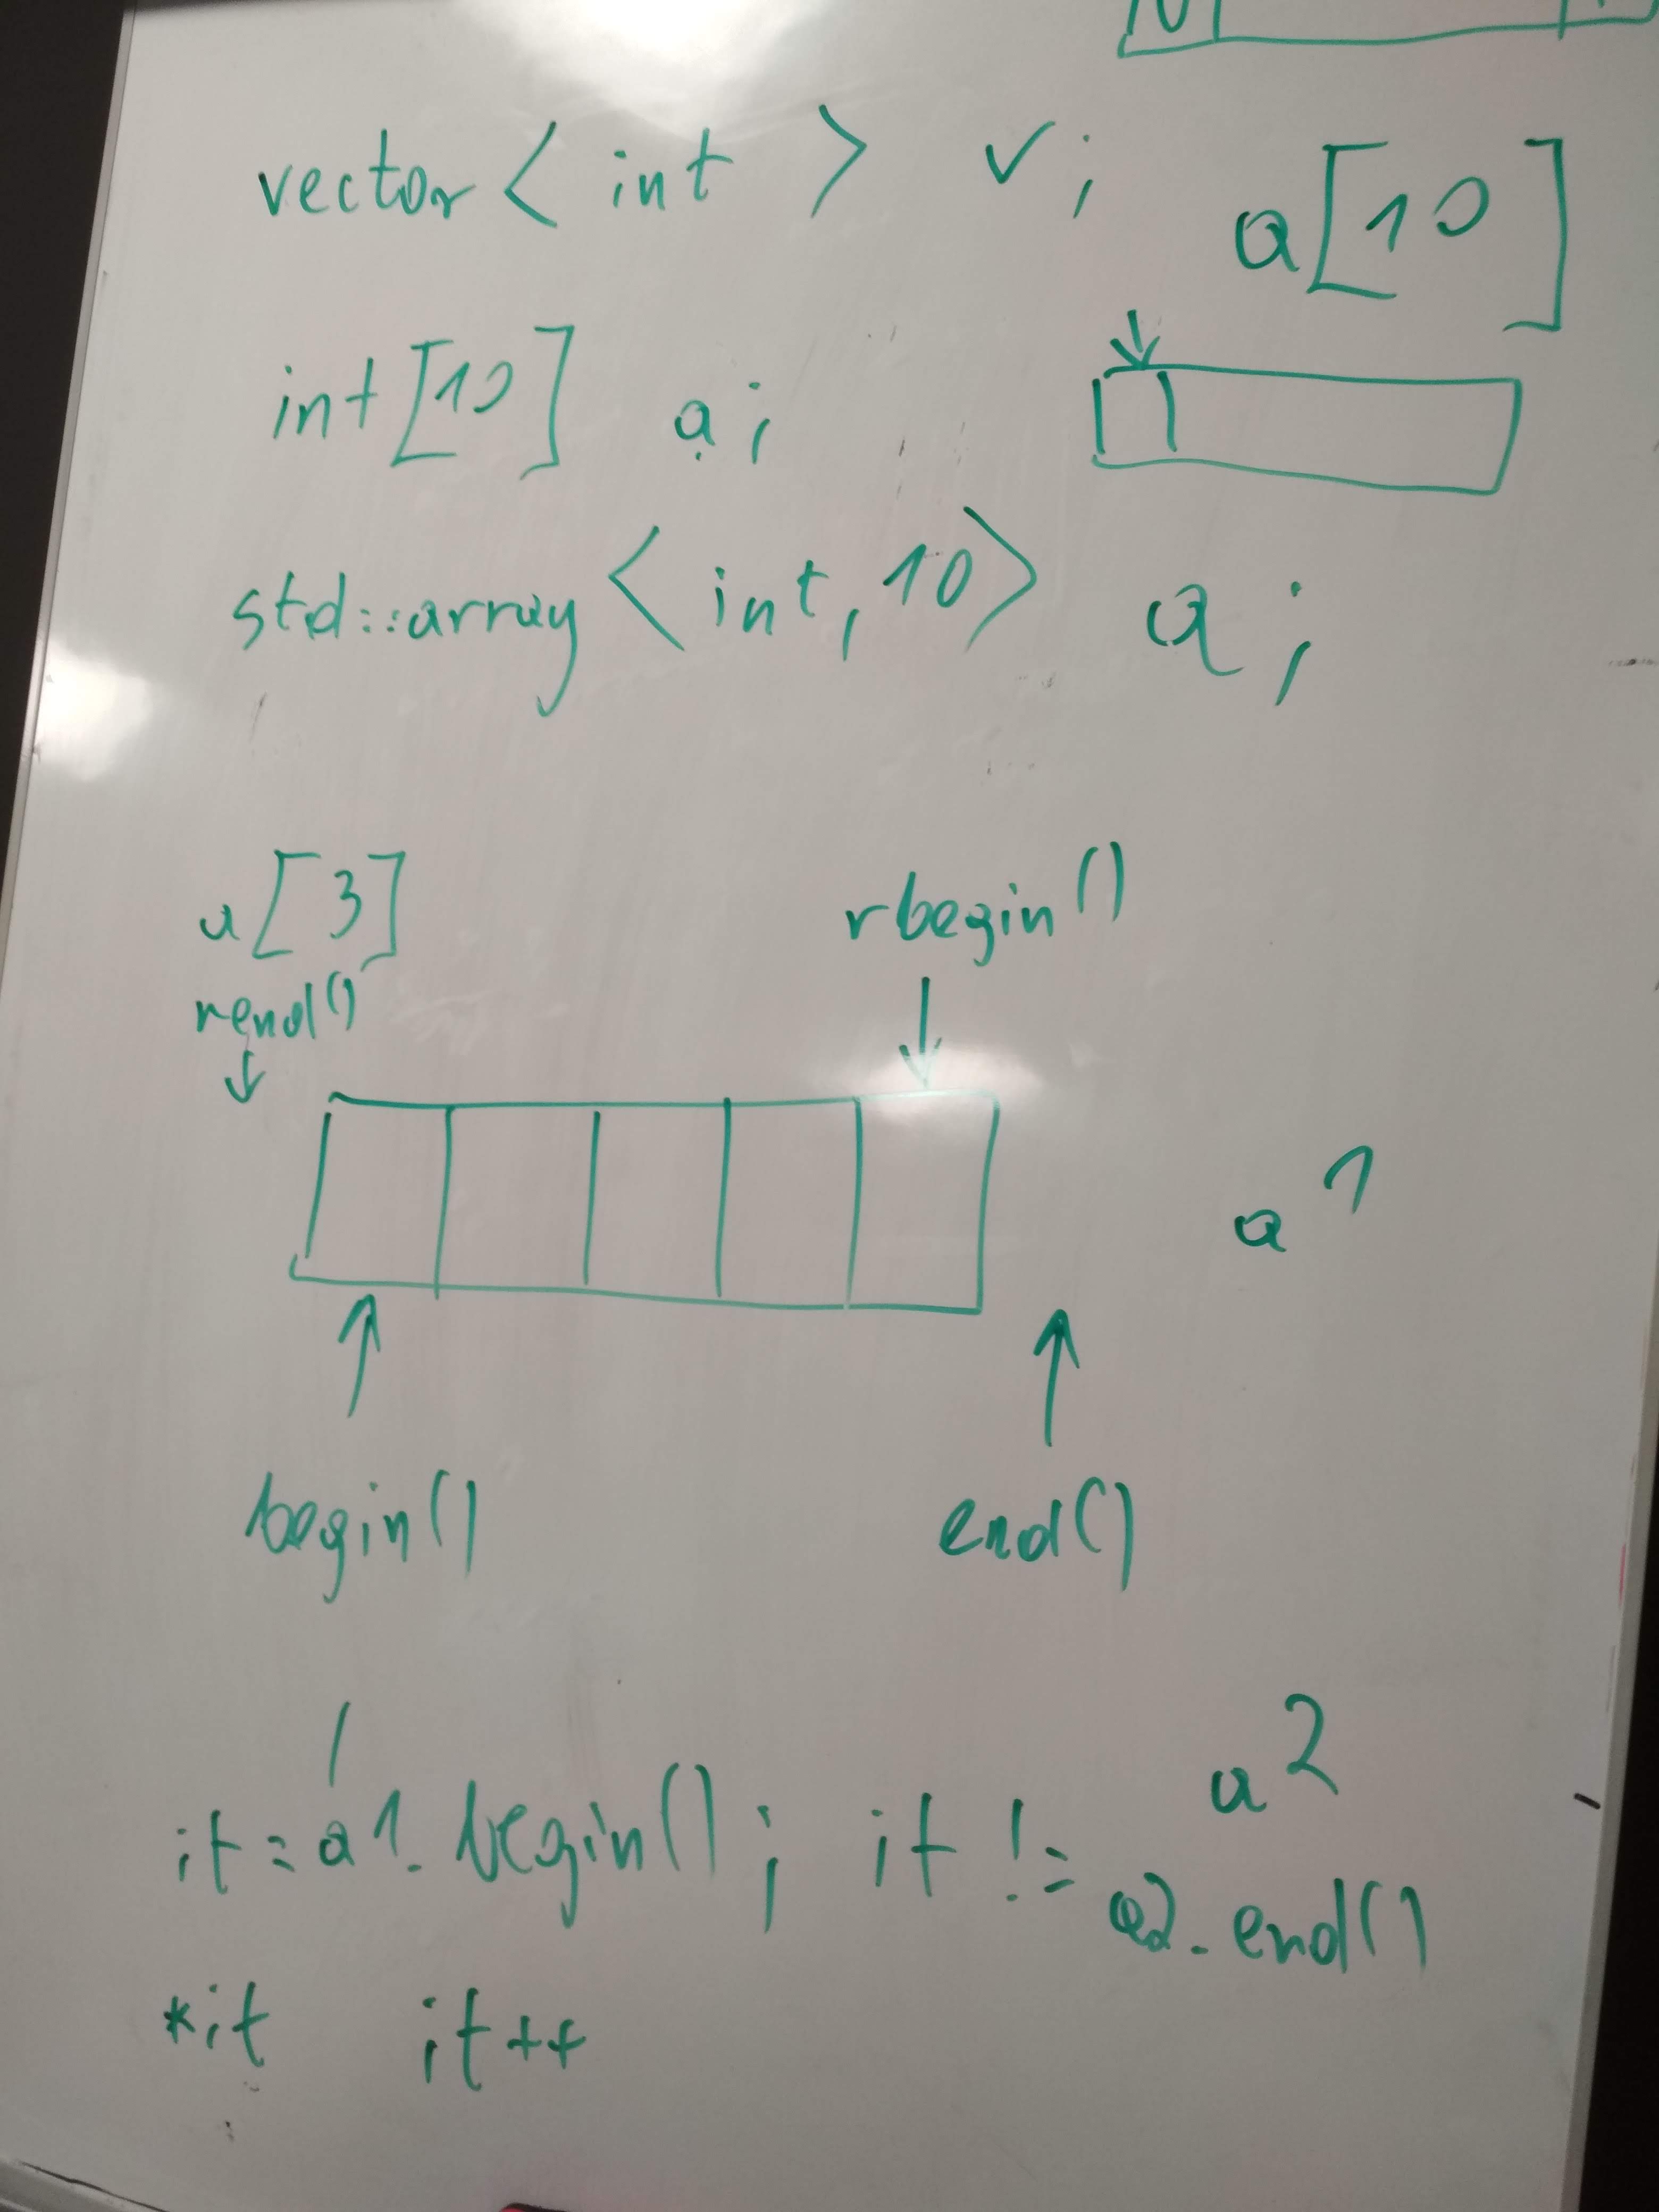 vector < int > v;
a[10]
int[10] a;
std::array <int, 10> a;
a[3]
rbegin()
rend()
a1
begin()
end()
a2
it = a1.begin(); it !=
a2.end()
*it it++